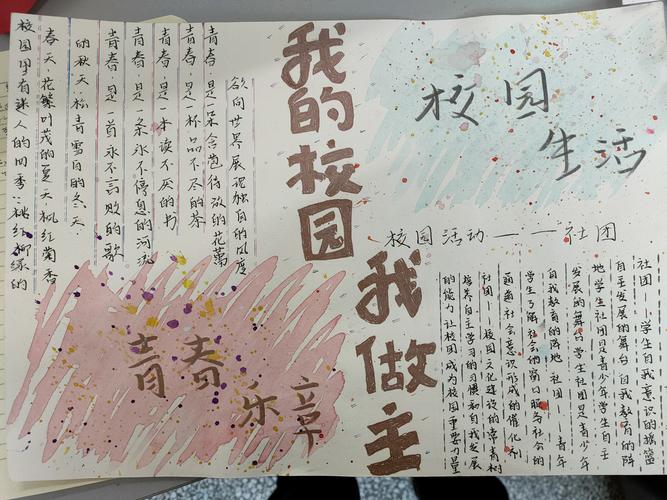 我的校园
我做主
校园
生活
校园里有迷人的四季:桃红柳绿的
春天·花繁叶茂的夏天枫红菊香
的秋天·松青雪白的冬天·
青春·是一首永不言败的歌
青春·是一条永不停息的河流
青春·是一本读不厌的书
青春·是一杯品不尽的茶
青春·是一朵含苞待放的花蕾
欲向世界展现独自的风度
青春
乐章
校园活动——社团
社团——学生自我意识的摇篮
自主发展的舞台 自我教育的阵
地 学生社团是青少年学生自主
发展的舞台 学生社团是青少年
自我教育的阵地 社团——青年
学生了解社会的窗口服务社会的
通道 社会意识形成的催化剂
社团——校园文化建设的常青树
培养自主学习的习惯和自我发展
的能力 让校园成为校园重要力量